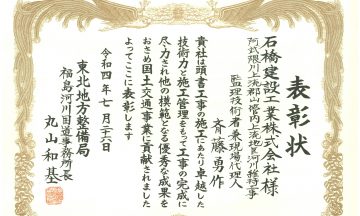 表彰状
石橋建設工業株式会社 様
阿武隈川上流郡山管内上流地区河川維持工事
監理技術者兼現場代理人
斉藤勇作
貴社は頭書工事の施工にあたり卓越した
技術力と施工管理をもって工事の完成に
尽力され他の模範となる優秀な成果を
おさめ国土交通事業に貢献されました
よってここに表彰します
令和四年七月二十六日
東北地方整備局
福島河川国道事務所長
丸山和基